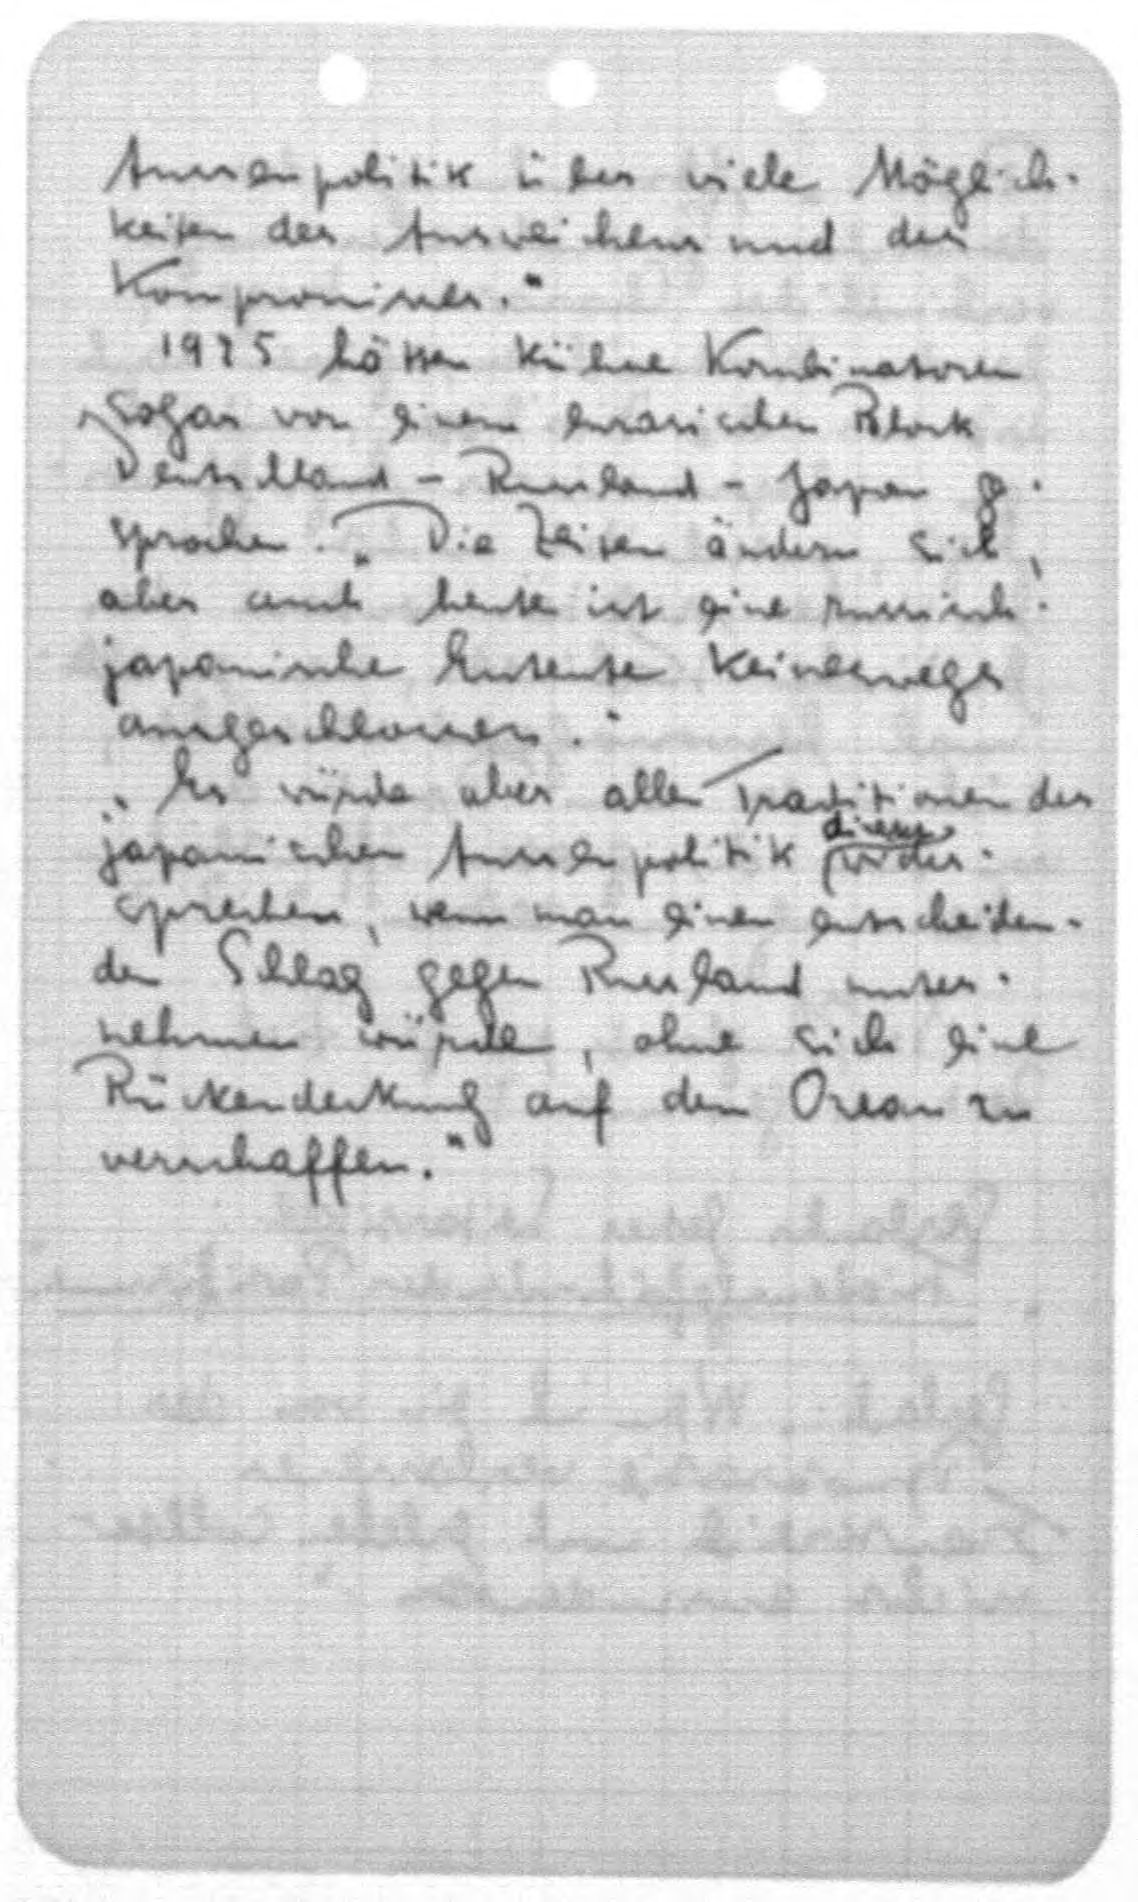 Aussenpolitik über viele Möglich-
keiten des Ausweichens und des
Kompromisses."
1925 hätten kühne Kombinatoren
sogar von einem eurasischen Block
Deutschland - Russland - Japan ge-
sprochen. „Die Zeiten ändern sich,
aber auch heute ist eine russisch-
japanische Entente keineswegs
ausgeschlossen."
„Es würde aber allen Traditionen der
japanischen Aussenpolitik direkt wider-
sprechen, wenn man einen entscheiden-
den Schlag gegen Russland unter-
nehmen würde, ohne sich eine
Rückendeckung auf dem Ozean zu
verschaffen."